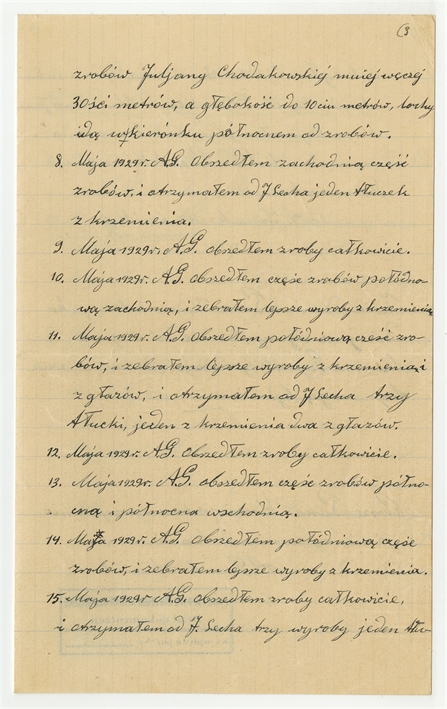 (3
zrobów Juljany Chodakowskiéj mniej węcej
30ści metrów, a głębokość do 10ciu metrów, lochy
idą w kierónku północnem od zrobów.
8. Maja 1929 r. A.G. Obszedłem zachodnią część
zrobów, i otrzymałem od J Lecha jeden tłuczek
z krzemienia.
9. Maja 1929 r. A.G. obszedłem zroby całkowicie.
10. Maja 1929 r. A.G. obszedłem część zrobów połódno-
wą zachodnią, i zebrałem lepsze wyroby z krzemienia,
11. Maja 1929 r. A.G. obszedłem połódniową część zro-
bów, i zebrałem lepsze wyroby z krzemienia, i
z głazów, i otrzymałem od J Lecha trzy
tłucki, jeden z krzemienia dwa z głazów.
12. Maja 1929 r. A.G. Obszedłem zroby całkowicie.
13. Maja 1929 r. A.G. obszedłem część zrobów półno-
cną i północna wschodnią.
14. Maja 1929 r. A.G. Obszedłem połódniową częśe
zrobów, i zebrałem lepsze wyroby z krzemienia.
15. Maja 1929 r A.G. Obszedłem zroby całkowicie,
i otrzymałem od J. Lecha trzy wyroby jeden tłu-